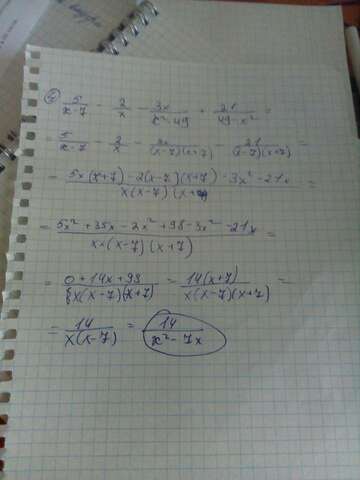 ④ 5/(x-7) - 2/x - 3x/(x²-49) + 21/(49-x²) =
= 5/(x-7) - 2/x - 3x/((x-7)(x+7)) - 21/((x-7)(x+7)) =
= (5x(x+7) - 2(x-7)(x+7) - 3x² - 21x)/(x(x-7)(x+7)) =
= (5x² + 35x - 2x² + 98 - 3x² - 21x)/(x(x-7)(x+7)) =
= (0 + 14x + 98)/(x(x-7)(x+7)) = 14(x+7)/(x(x-7)(x+7)) =
= 14/(x(x-7)) = 14/(x² - 7x)